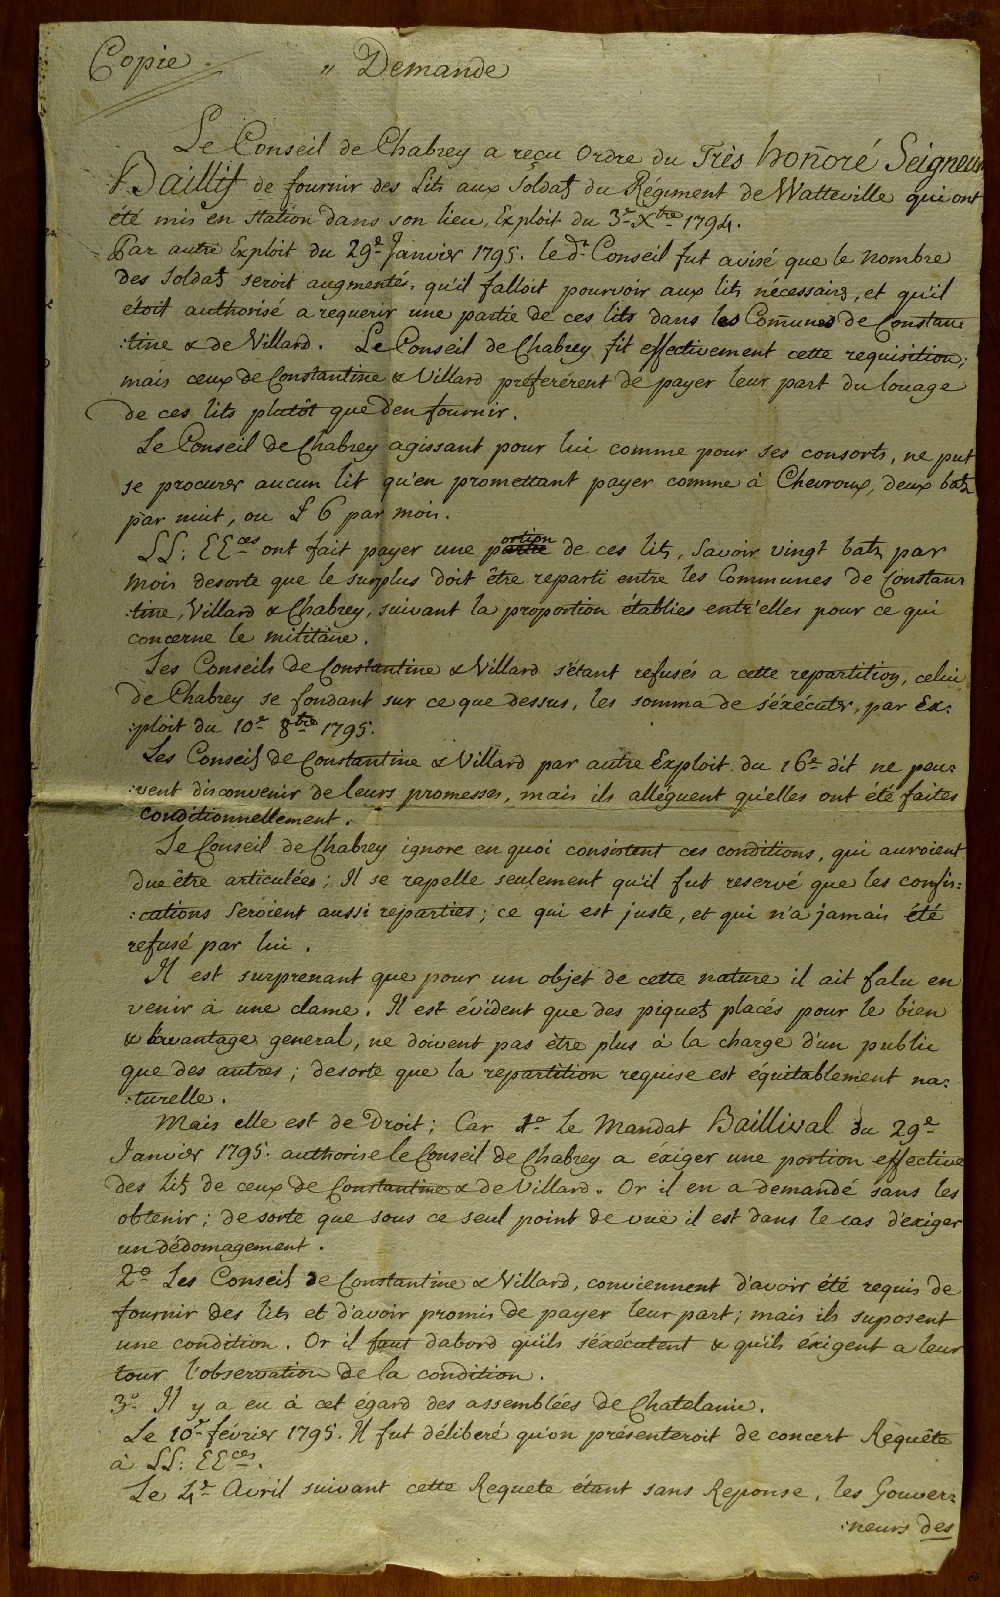 Copie
" Demande
Le Conseil de Chabrey a reçu Ordre du Très honoré Seigneur
Baillif de fournir des Lits aux Soldats du Régiment de Watteville qui ont
été mis en station dans son lieu, Exploit du 3.e Xbre 1794.
Par autre Exploit du 29.e Janvier 1795. le d.t Conseil fut avisé que le nombre
des Soldats seroit augmentés, qu'il falloit pourvoir aux lits nécessaires, et qu'il
étoit authorisé a requerir une partie de ces lits dans les Com̃unes de Constan:
:tine & de Villard. Le Conseil de Chabrey fit effectivement cette requisition;
mais ceux de Constantine & Villard préferérent de payer leur part du louage
de ces lits plutôt que d'en fournir.
Le Conseil de Chabrey agissant pour lui comme pour ses consorts, ne put
se procurer aucun lit qu'en promettant payer comme à Chevroux, deux batz
par nuit, ou £ 6 par mois.
LL: EE.ces ont fait payer une portion de ces lits, Savoir vingt batz par
mois desorte que le surplus doit être reparti entre les Communes de Constan:
:tine, Villard & Chabrey, suivant la proportion établies entr'elles pour ce qui
concerne le militaire.
Les Conseils de Constantine & Villard s'étant refusés a cette repartition, celui
de Chabrey se fondant sur ce que dessus, les somma de s'éxécuter, par Ex:
:ploit du 10.e 8bre 1795.
Les Conseils de Constantine & Villard par autre Exploit du 16.e dit ne peu:
:vent disconvenir de leurs promesses, mais ils alléguent qu'elles ont été faites
conditionnellement.
Le Conseil de Chabrey ignore en quoi consistent ces conditions, qui auroient
due être articulées; Il se rapelle seulement qu'il fut reservé que les confis:
:cations seroient aussi reparties; ce qui est juste, et qui n'a jamais été
refusé par lui.
Il est surprenant que pour un objet de cette nature il ait falu en
venir à une clame. Il est évident que des piquets placés pour le bien
& l'avantage general, ne doivent pas être plus à la charge d'un public
que des autres; desorte que la repartition requise est équitablement na:
:turelle.
Mais elle est de Droit; Car 1.o Le Mandat Baillival du 29.e
Janvier 1795. authorise le Conseil de Chabrey a éxiger une portion effective
des Lits de ceux de Constantine & de Villard. Or il en a demandé sans les
obtenir; de sorte que sous ce seul point de vüe il est dans le cas d'exiger
un dédomagement.
2.o Les Conseils de Constantine & Villard, conviennent d'avoir été requis de
fournir des lits et d'avoir promis de payer leur part; mais ils suposent
une condition. Or il faut dabord qu'ils s'éxécutent & qu'ils éxigent a leur
tour l'observation de la condition.
3.o Il y a eu à cet égard des assemblées de Chatelanie.
Le 10.e février 1795. Il fut délibéré qu'on présenteroit de concert Requête
à LL: EE.ces
Le 4.e Avril suivant cette Requete étant sans Reponse, les Gouver:
:neurs des